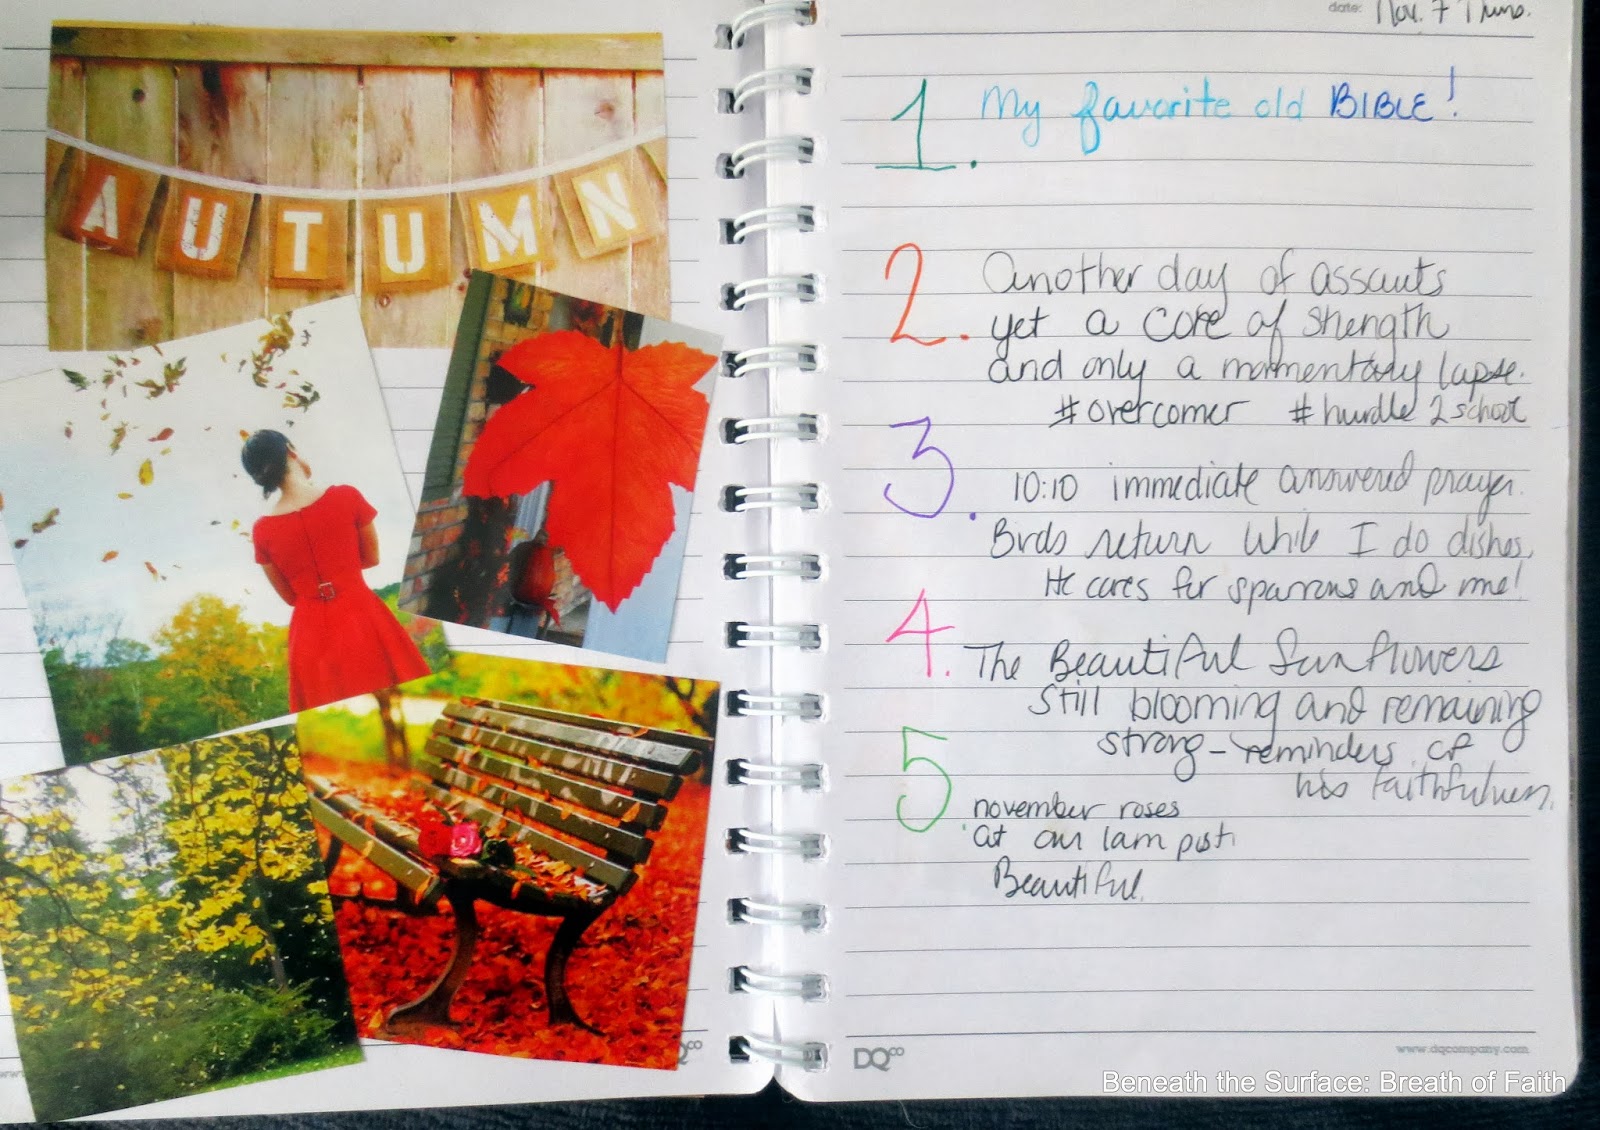 AUTUMN
date: Nov. 7 Thurs.
1. My favorite old BIBLE!
2. Another day of assaults
yet a core of strength
and only a momentary lapse.
#overcomer #hurdle2school
3. 10:10 immediate answered prayer.
Birds return while I do dishes.
He cares for sparrows and me!
4. The Beautiful Sunflowers
still blooming and remaining
strong - reminders of
his faithfulness.
5. november roses
at our lam post.
Beautiful.
DQco
www.dqcompany.com
Beneath the Surface: Breath of Faith